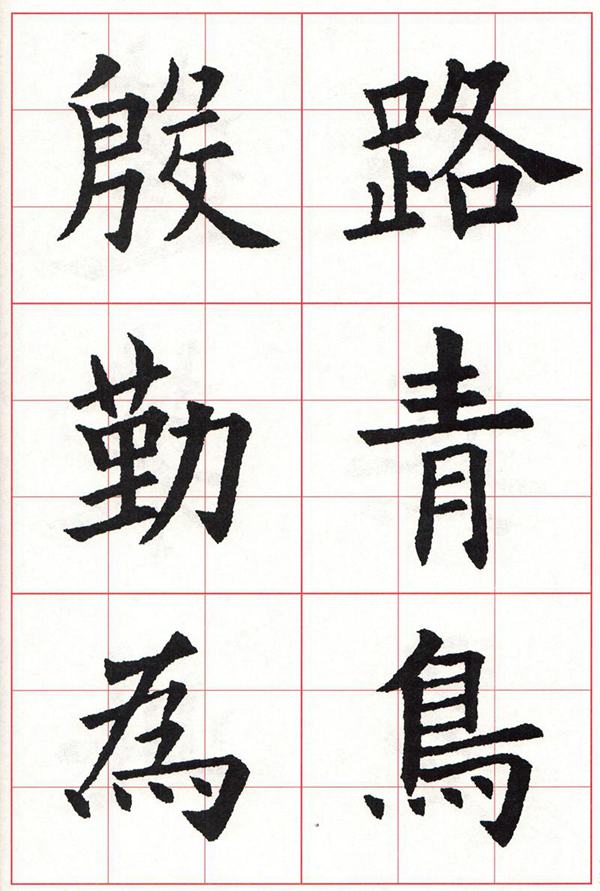 路青鳥
殷勤為